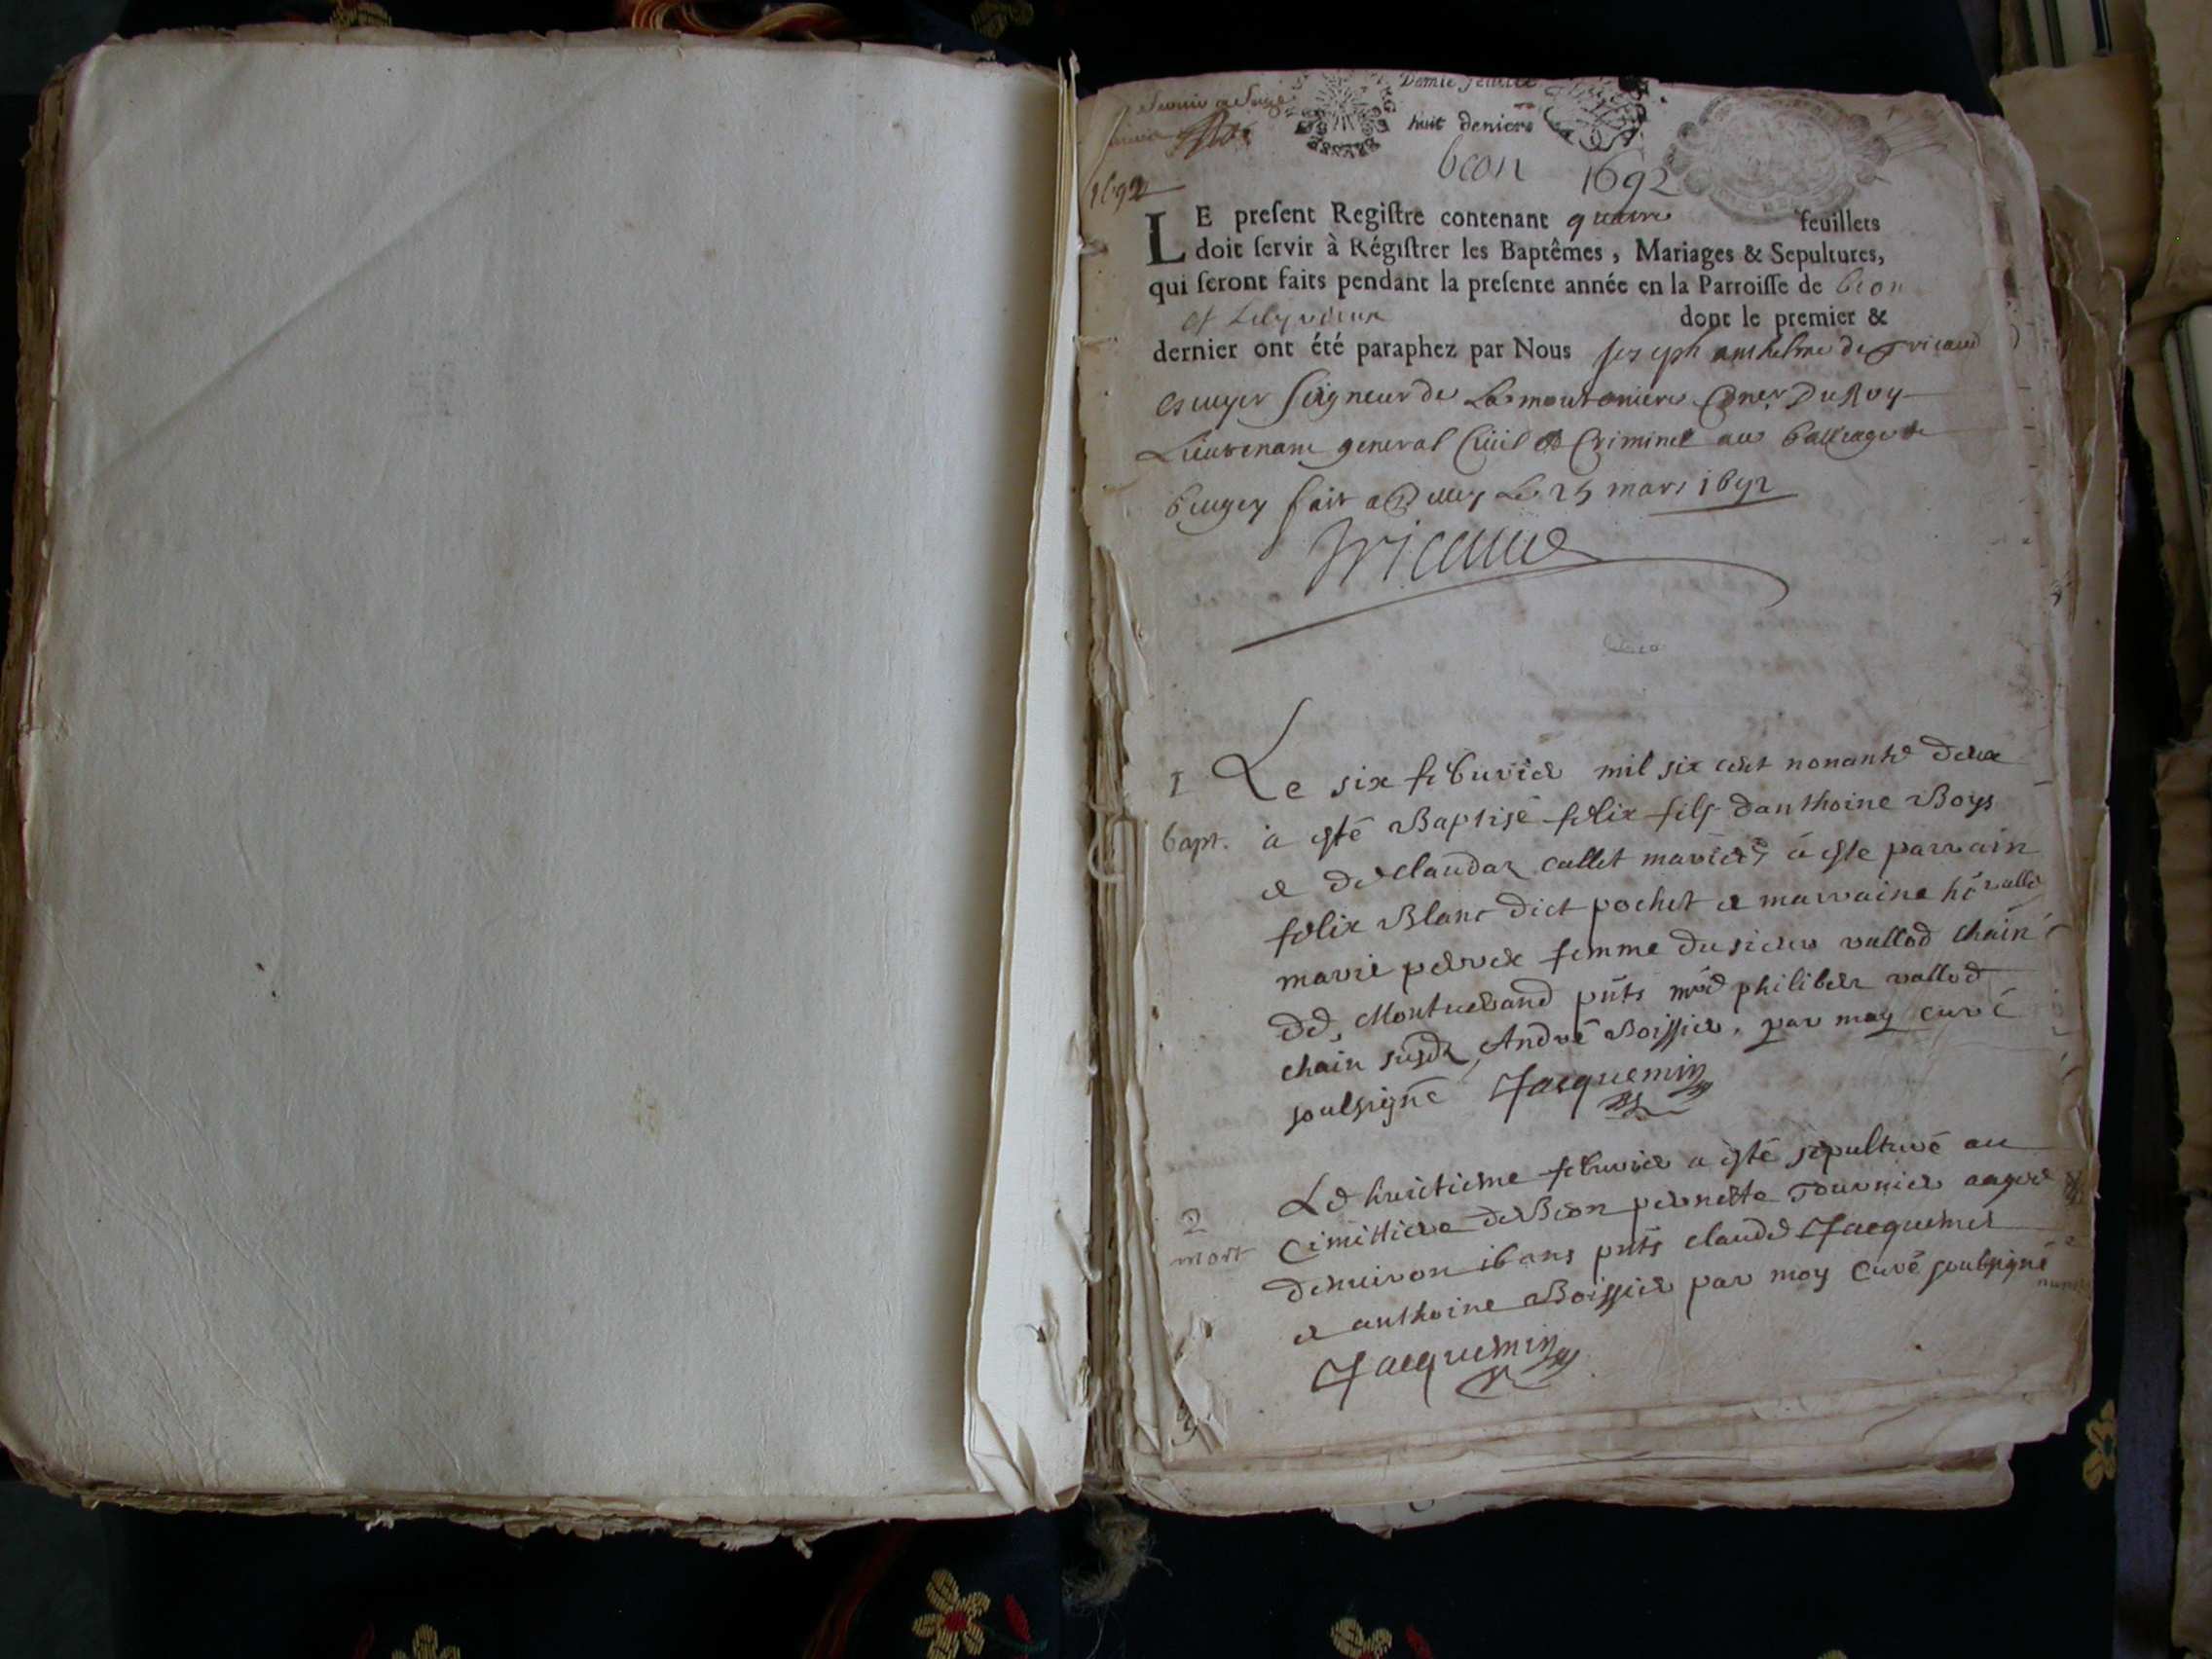 Demie feuille
huit deniers
beon 1692
1692
LE preſent Regiſtre contenant quatre feuillets
doit ſervir à Régiſtrer les Baptêmes, Mariages & Sepultures,
qui ſeront faits pendant la preſente année en la Parroiſſe de beon
et dont le premier &
dernier ont été paraphez par Nous Joseph anthelme de Tricaud
escuyer seigneur de La moutoniere Coner Du Roy
Lieutenant general Civil et Criminel au balliage de
beugey fait a Belley Le 25 mars 1692
Tricaud
1 Le six feburier mil six cent nonante deux
bapt. a esté Baptisé felix fils danthoine Boys
et de claudaz callet mariés, a esté parrain
felix Blanc dict pochet et marraine
marie perret femme du sieur vallod chain
de Montverand pnts philiber vallod
chain susdt André Boissier, par moy curé
soulsigné Jacquemin
2 Le huictieme febvrier a esté sepulturé au
mort Cimittiere de Beon pernette Tournier aagée
denuiron 16 ans pnts claude Jacquemet
et anthoine Boissier par moy Curé soulsigné
Jacquemin